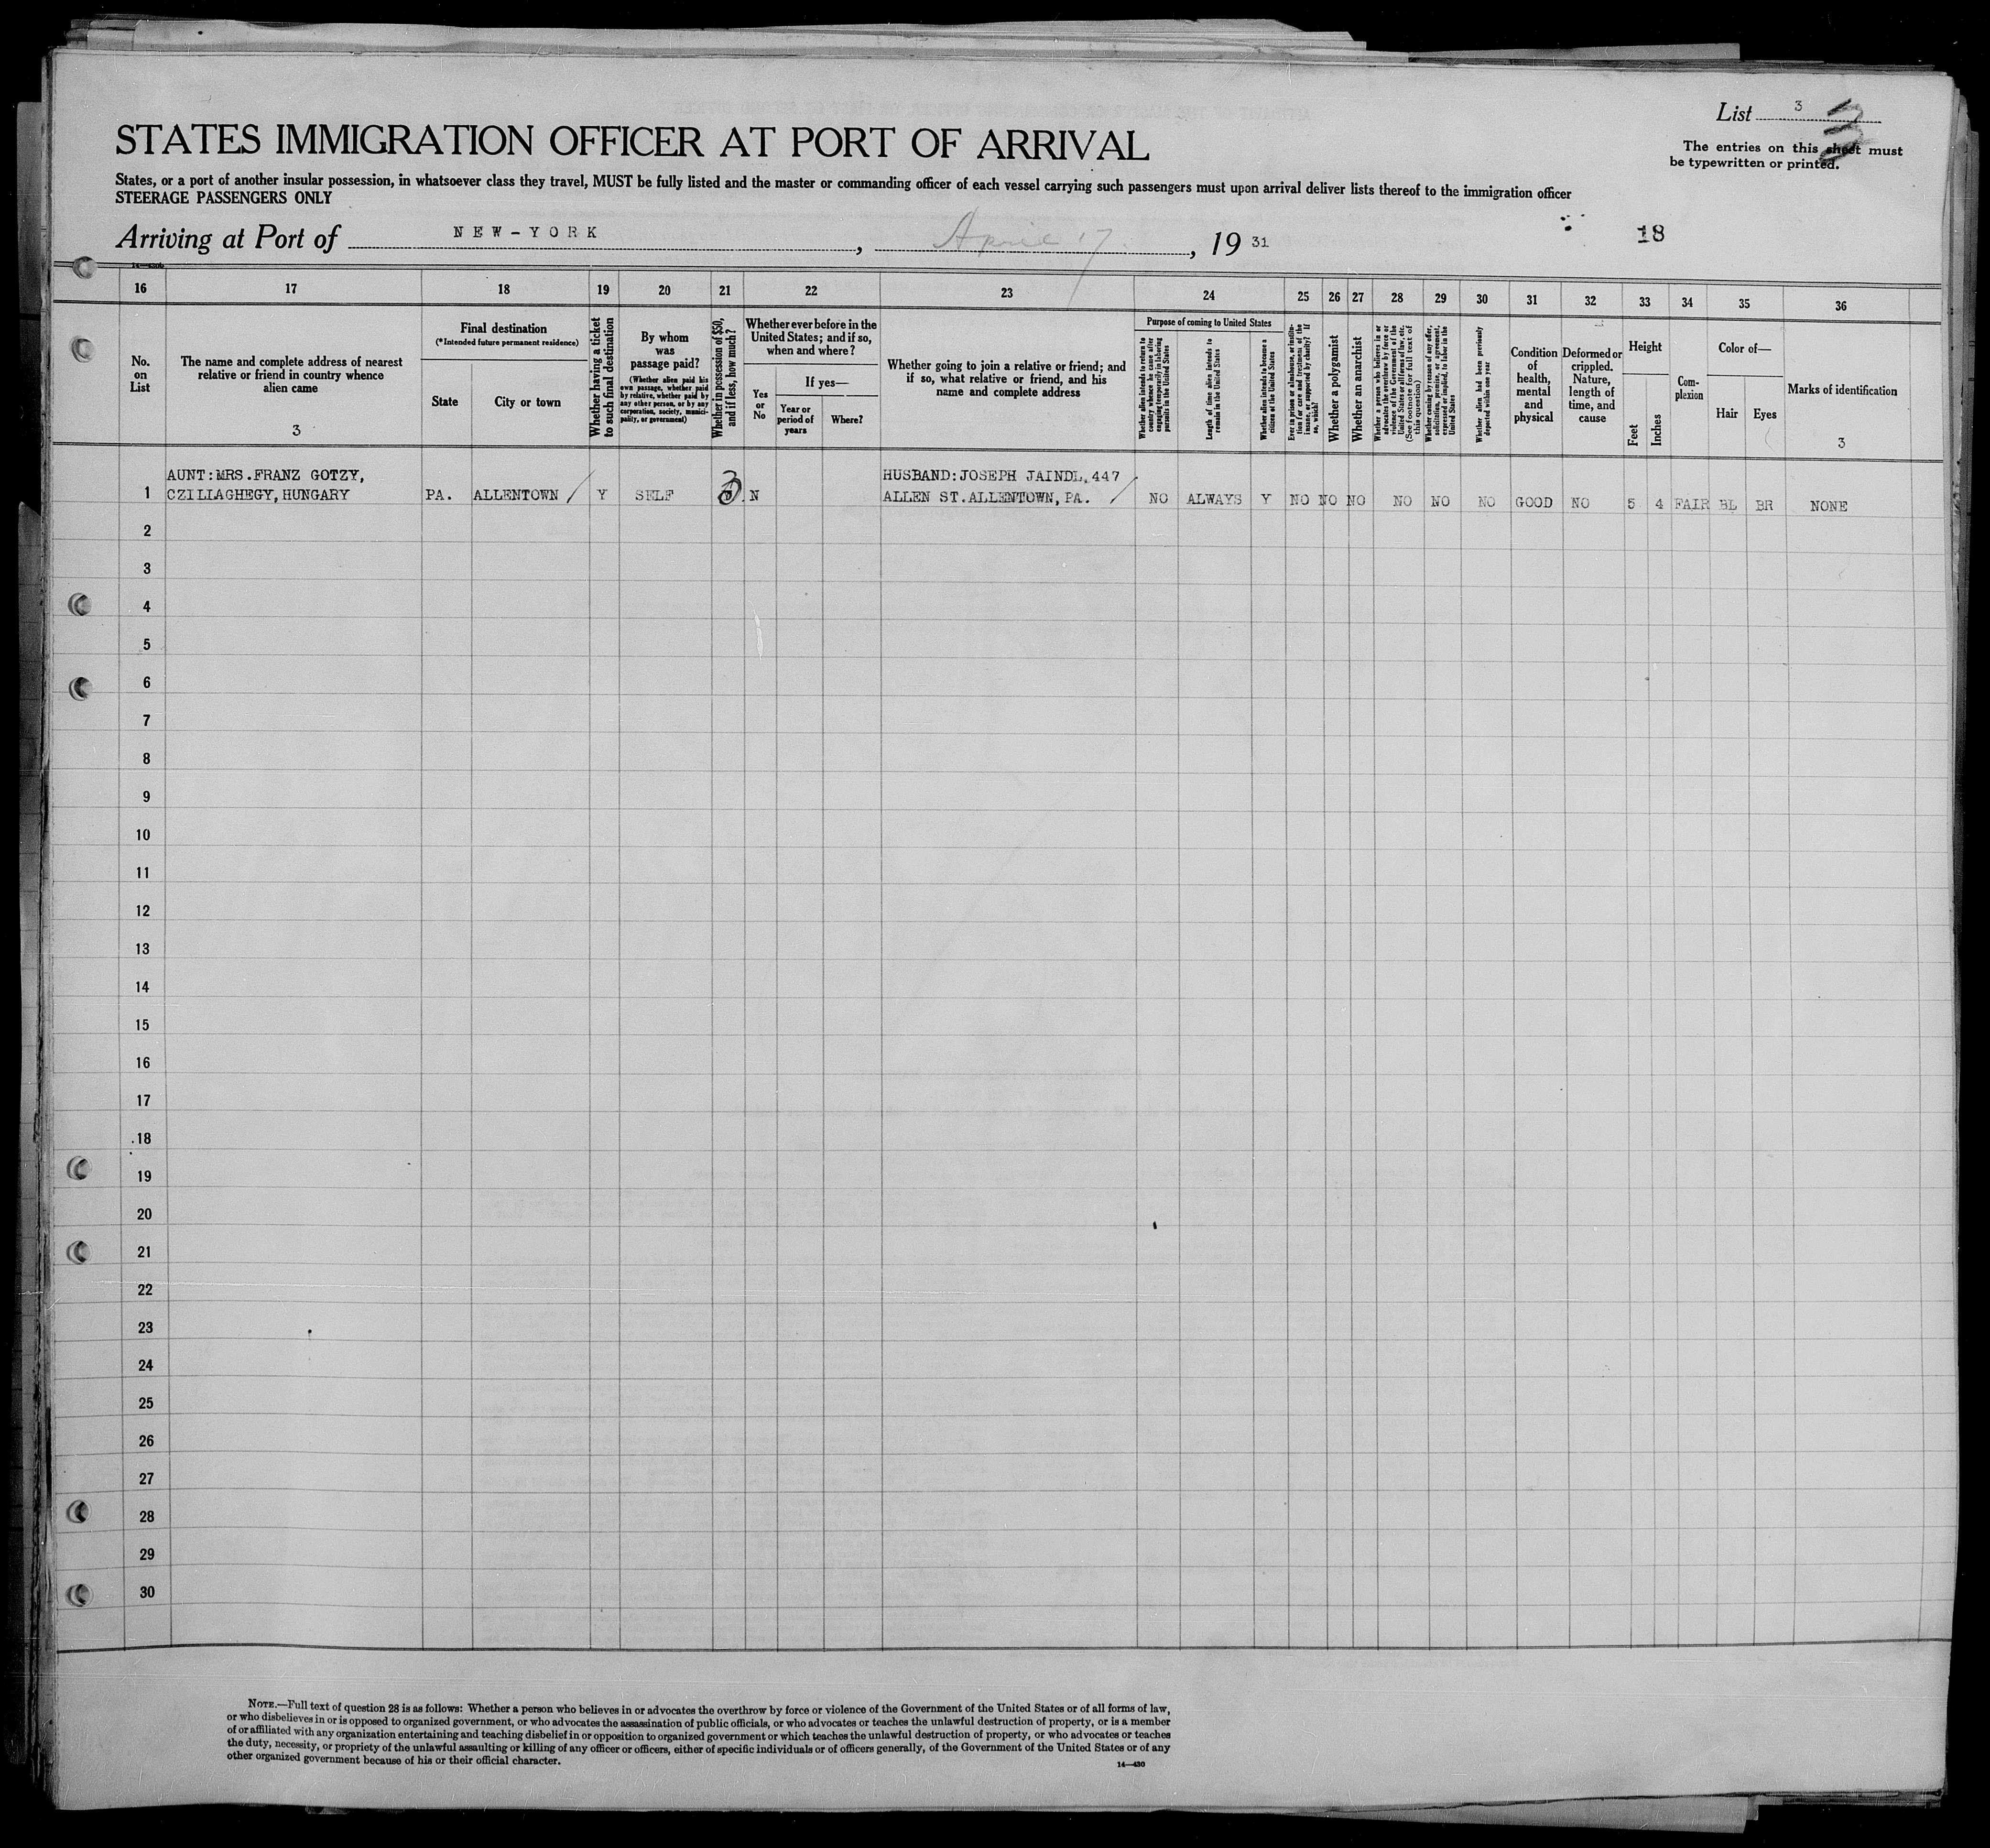 List 3 3
The entries on this sheet must
be typewritten or printed.
STATES IMMIGRATION OFFICER AT PORT OF ARRIVAL
States, or a port of another insular possession, in whatsoever class they travel, MUST be fully listed and the master or commanding officer of each vessel carrying such passengers must upon arrival deliver lists thereof to the immigration officer
STEERAGE PASSENGERS ONLY
Arriving at Port of NEW-YORK, April 17, 1931
18
16 17 18 19 20 21 22 23 24 25 26 27 28 29 30 31 32 33 34 35 36
No. on List
The name and complete address of nearest
relative or friend in country whence
alien came
3
Final destination
(*Intended future permanent residence)
State
City or town
Whether having a ticket
to such final destination
By whom
was
passage paid?
(Whether alien paid his
own passage, whether paid
by relative, whether paid by
any other person, or by any
corporation, society, munici-
pality, or government)
Whether in possession of $50,
and if less, how much?
Whether ever before in the
United States; and if so,
when and where?
Yes
or
No
If yes—
Year or
period of
years
Where?
Whether going to join a relative or friend; and
if so, what relative or friend, and his
name and complete address
Purpose of coming to United States
Whether alien intends to return to
country whence he came after
engaging temporarily in laboring
pursuits in the United States
Length of time alien intends to
remain in the United States
Whether alien intends to become a
citizen of the United States
Ever in prison or almshouse, or institu-
tion for care and treatment of the
insane, or supported by charity? If
so, which?
Whether a polygamist
Whether an anarchist
Whether a person who believes in or
advocates the overthrow by force or
violence of the Government of the
United States or all forms of law, etc.
(See footnote for full text of
this question)
Whether coming by reason of any offer,
solicitation, promise, or agreement,
expressed or implied, to labor in the
United States
Whether alien had been previously
deported within one year
Condition
of
health,
mental
and
physical
Deformed or
crippled.
Nature,
length of
time, and
cause
Height
Feet
Inches
Com-
plexion
Color of—
Hair
Eyes
Marks of identification
3
AUNT:MRS.FRANZ GOTZY,
HUSBAND:JOSEPH JAINDL,447
1 CZILLAGHEGY,HUNGARY PA. ALLENTOWN / Y SELF N ALLEN ST.ALLENTOWN,PA. / NO ALWAYS Y NO NO NO NO NO NO GOOD NO 5 4 FAIR BL BR NONE
2
3
4
5
6
7
8
9
10
11
12
13
14
15
16
17
18
19
20
21
22
23
24
25
26
27
28
29
30
NOTE.—Full text of question 28 is as follows: Whether a person who believes in or advocates the overthrow by force or violence of the Government of the United States or of all forms of law,
or who disbelieves in or is opposed to organized government, or who advocates the assassination of public officials, or who advocates or teaches the unlawful destruction of property, or is a member
of or affiliated with any organization entertaining and teaching disbelief in or opposition to organized government or which teaches the unlawful destruction of property, or who advocates or teaches
the duty, necessity, or propriety of the unlawful assaulting or killing of any officer or officers, either of specific individuals or of officers generally, of the Government of the United States or of any
other organized government because of his or their official character.
14—430